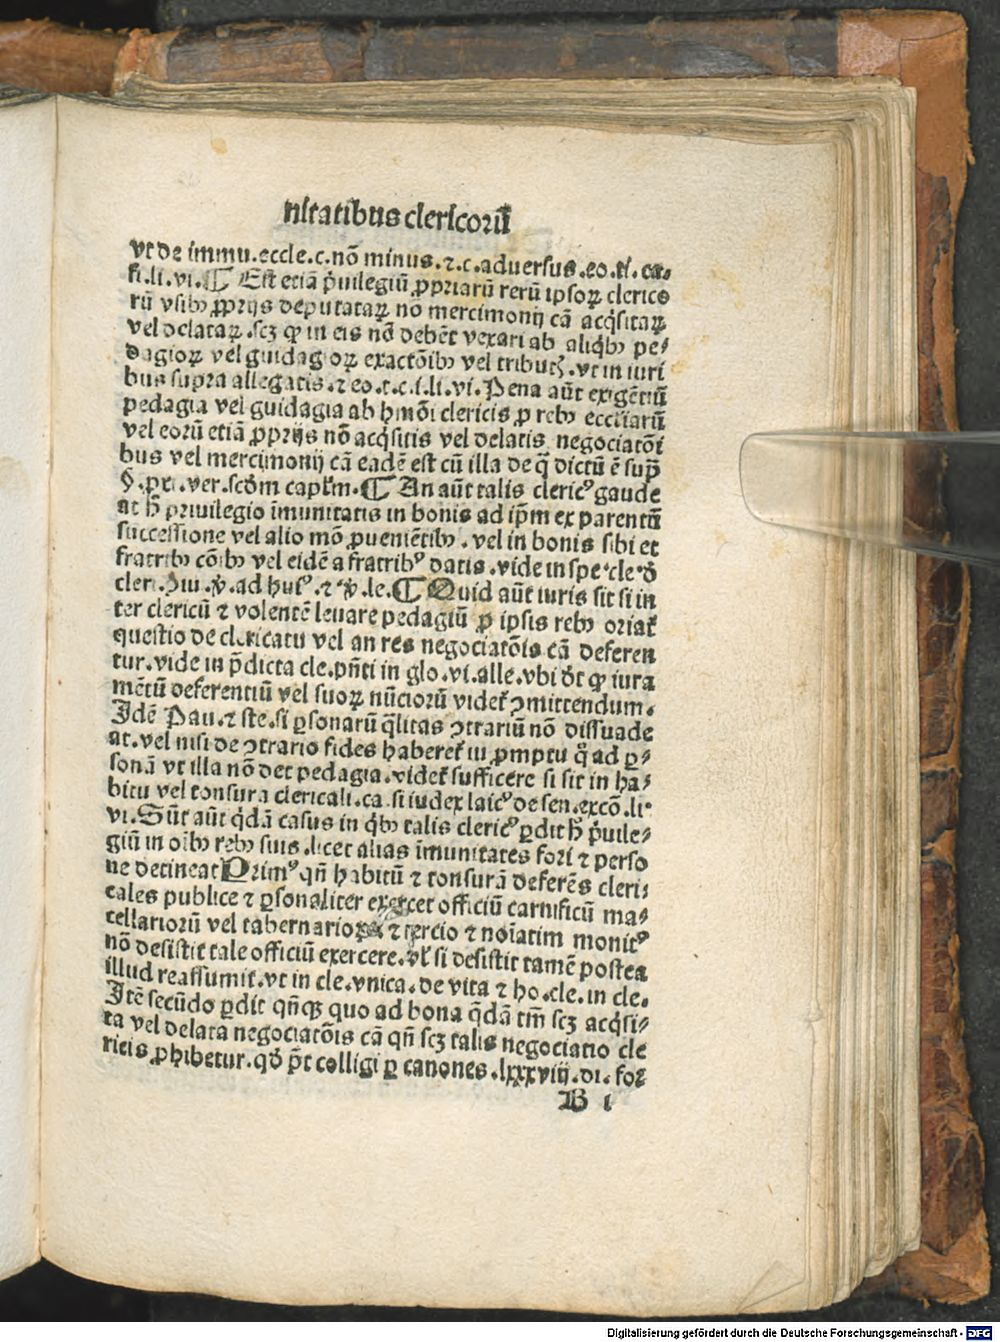 nitatibus clericorū
vt de immu.eccle.c.nō minus.⁊.c.aduersus.eo.ti. ca-
li.vi.¶ Est etiā p̄uilegiū ꝓpriarū rerū ipsoꝝ clerico
rū vsibꝫ ꝓprijs deputataꝝ nō mercimonij cā acq̄sitaꝝ
vel delataꝝ .scꝫ ꝙ in eis nō debēt vexari ab aliq̄bꝫ pe⸗
dagioꝝ vel guidagioꝝ exactōibꝫ vel tributꝭ.vt in iuri
bus supra allegatis.⁊ eo.t.c.i.li.vi.Pena aūt exigētiū
pedagia vel guidagia ab hmōi clericis ꝓ rebꝫ eccliarū
vel eorū etiā ꝓprijs nō acq̄sitis vel delatis negociatōi
bus vel mercimonij cā eadē est cū illa de q̄ dictū ē sup̄
§.pxi.ver.scd̄m capl̄m.¶ An aūt talis clericꝰ gaude
at hͦ priuilegio īmunitatis in bonis ad ip̄m ex parentū
successione vel alio mō ꝓueniētibꝫ . vel in bonis sibi et
fratribꝫ cōibꝫ vel eidē a fratribꝰ datis .vide in spe.cle.ď
cleri.ꝯiu.ꝟ.ad huiꝰ.⁊ ꝟ.le.¶ Quid aūt iuris sit si in
ter clericū ⁊ volentē leuare pedagiū ꝓ ipsis rebꝫ oriat̄
questio de clericatu vel an res negociatōis cā deferen
tur.vide in p̄dicta cle.pn̄ti in glo.vi.alle.vbi dt̄ ꝙ iura
mētū deferentiū vel suoꝝ nūcioꝝ videt̄ ꝯmittendum.
Idē Pau.⁊ ste.si ꝑsonarū q̄litas ꝯtrariū nō dissuade
at.vel nisi de ꝯtrario fides haberet̄ in ꝓmptu q̄ ad ꝑ⸗
sonā vt illa nō det pedagia.videt̄ sufficere si sit in ha⸗
bitu vel tonsura clericali.ca.si iudex laicꝰ de sen.excō.li.
vi.Sūt aūt q̄dā casus in q̄bꝫ talis clericꝰ ꝑdit hͦ p̄uile⸗
giū in oībꝫ rebꝫ suis .licet alias īmunitates fori ⁊ perso
ne detineat Primꝰ qn̄ habitū ⁊ tonsurā deferēs cleri⸗
cales publice ⁊ ꝑsonaliter exercet officiū carnificū ma⸗
cellariorū vel tabernarioꝝ ⁊ tercio ⁊ noīatim monitꝰ
nō desistit tale officiū exercere.vl̄ si desistit tamē postea
illud reassumit.vt in cle.vnica.de vita ⁊ ho.cle.in cle.
Itē secūdo ꝑdit qn̄qꝫ quo ad bona q̄dā tm̄ scꝫ acq̄si⸗
ta vel delata negociatōis cā qn̄ scꝫ talis negociatio cle
ricis ꝓhibetur.qď pt̄ colligi ꝑ canones .lxxxviij.di. for
B i
Digitalisierung gefördert durch die Deutsche Forschungsgemeinschaft - DFG